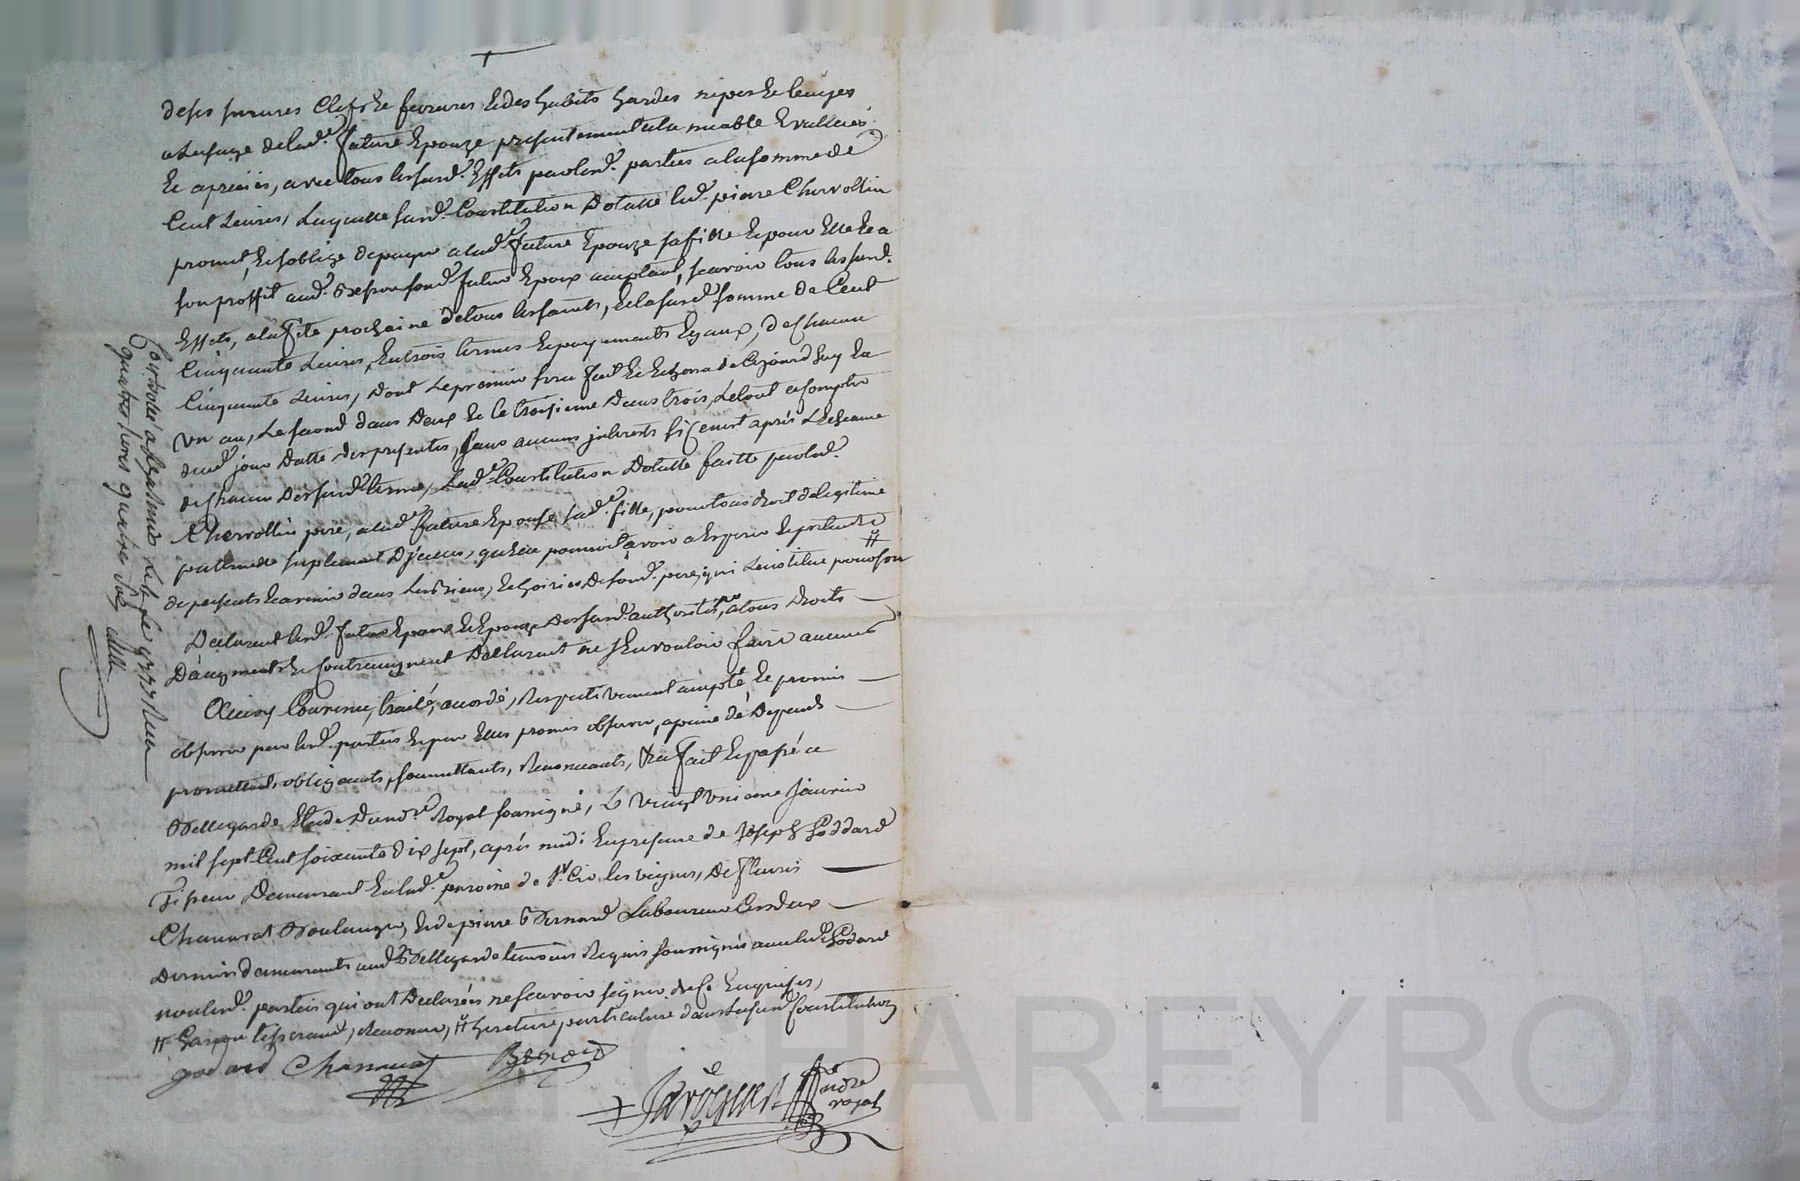 deses serrures Clefs & ferrures & des habits hardes nipes & linges
a Lusage de lad.e future Epouze presentement estimable Evallués
& apreciés, avec tous les susd. Effets par lesd. parties a la somme de
Cent Livres, Laquelle susd. Constitution Dotalle led. pierre Chervollin
promet, & soblige de payer a lad.e future Epouze sa fille & pour Elle & a
son proffit aud. son sond. futur Epoux acceptant, scavoir tous les susd.
Effets, a la fete prochaine de tous les saints, & la susd.e somme de Cent
Cinquante Livres, En trois termes & payements Egaux, de Chacun
Cinquante Livres, dont Le premier sera fait & Echerra de Cejourd'huy En
un an, Le second dans Deux & le troisieme Dans trois, le tout a Compter
dud. jour Datte des presentes, sans aucuns interests si ce n'est après L'Echeance
de Chacun Desd. termes, Lad.e Constitution Dotalle faitte par led.
Chervollin pere, a lad.e future Epouse sad.e fille, pour tous droit de Legitime
paternelle suplement D'jcelui, quelle pourroit avoir a Esperer & pretendre
de presents & avenir dans Les Biens, & hoiries de sond. pere, qui L'institue pour son #
Declarent lesd. futurs Epoux & Epouze Desd. authorités, a tous Droits
D'augment & Contreaugment Declarent ne sen vouloir faire aucuns
Ainsy Convenu, traité, acordé, Respectivement accepté, & promis
observer par lesd. parties & par Elles promis observer, a peine de Depends
promettant, obligeants, soumettants, Renonceants, &c.a fait & passé a
Bellegarde Etude Dud. no.re Royal soussigné, Le Vingt unieme Janvier
mil sept Cent soixante Dix sept, après midi En presence de Joseph Goddard
Tisseur Demeurant En lad.e paroisse de St. Cir les vignes, de fleuris
Chanavat Boulanger, & de pierre Bernard Laboureur Ces deux
Derniers demeurants aud. Bellegarde temoins Requis soussignés avec led. Godard
non lesd. parties qui ont Declarées ne scavoir signer de ce Enquises,
# Garçon tisserand, Reconnu, # heritiere particuliere dans Lasusd. Constitution
godard Chanavat Bernard
Larochette
no.re
royal
Controlé a
quatre livres quatre sols